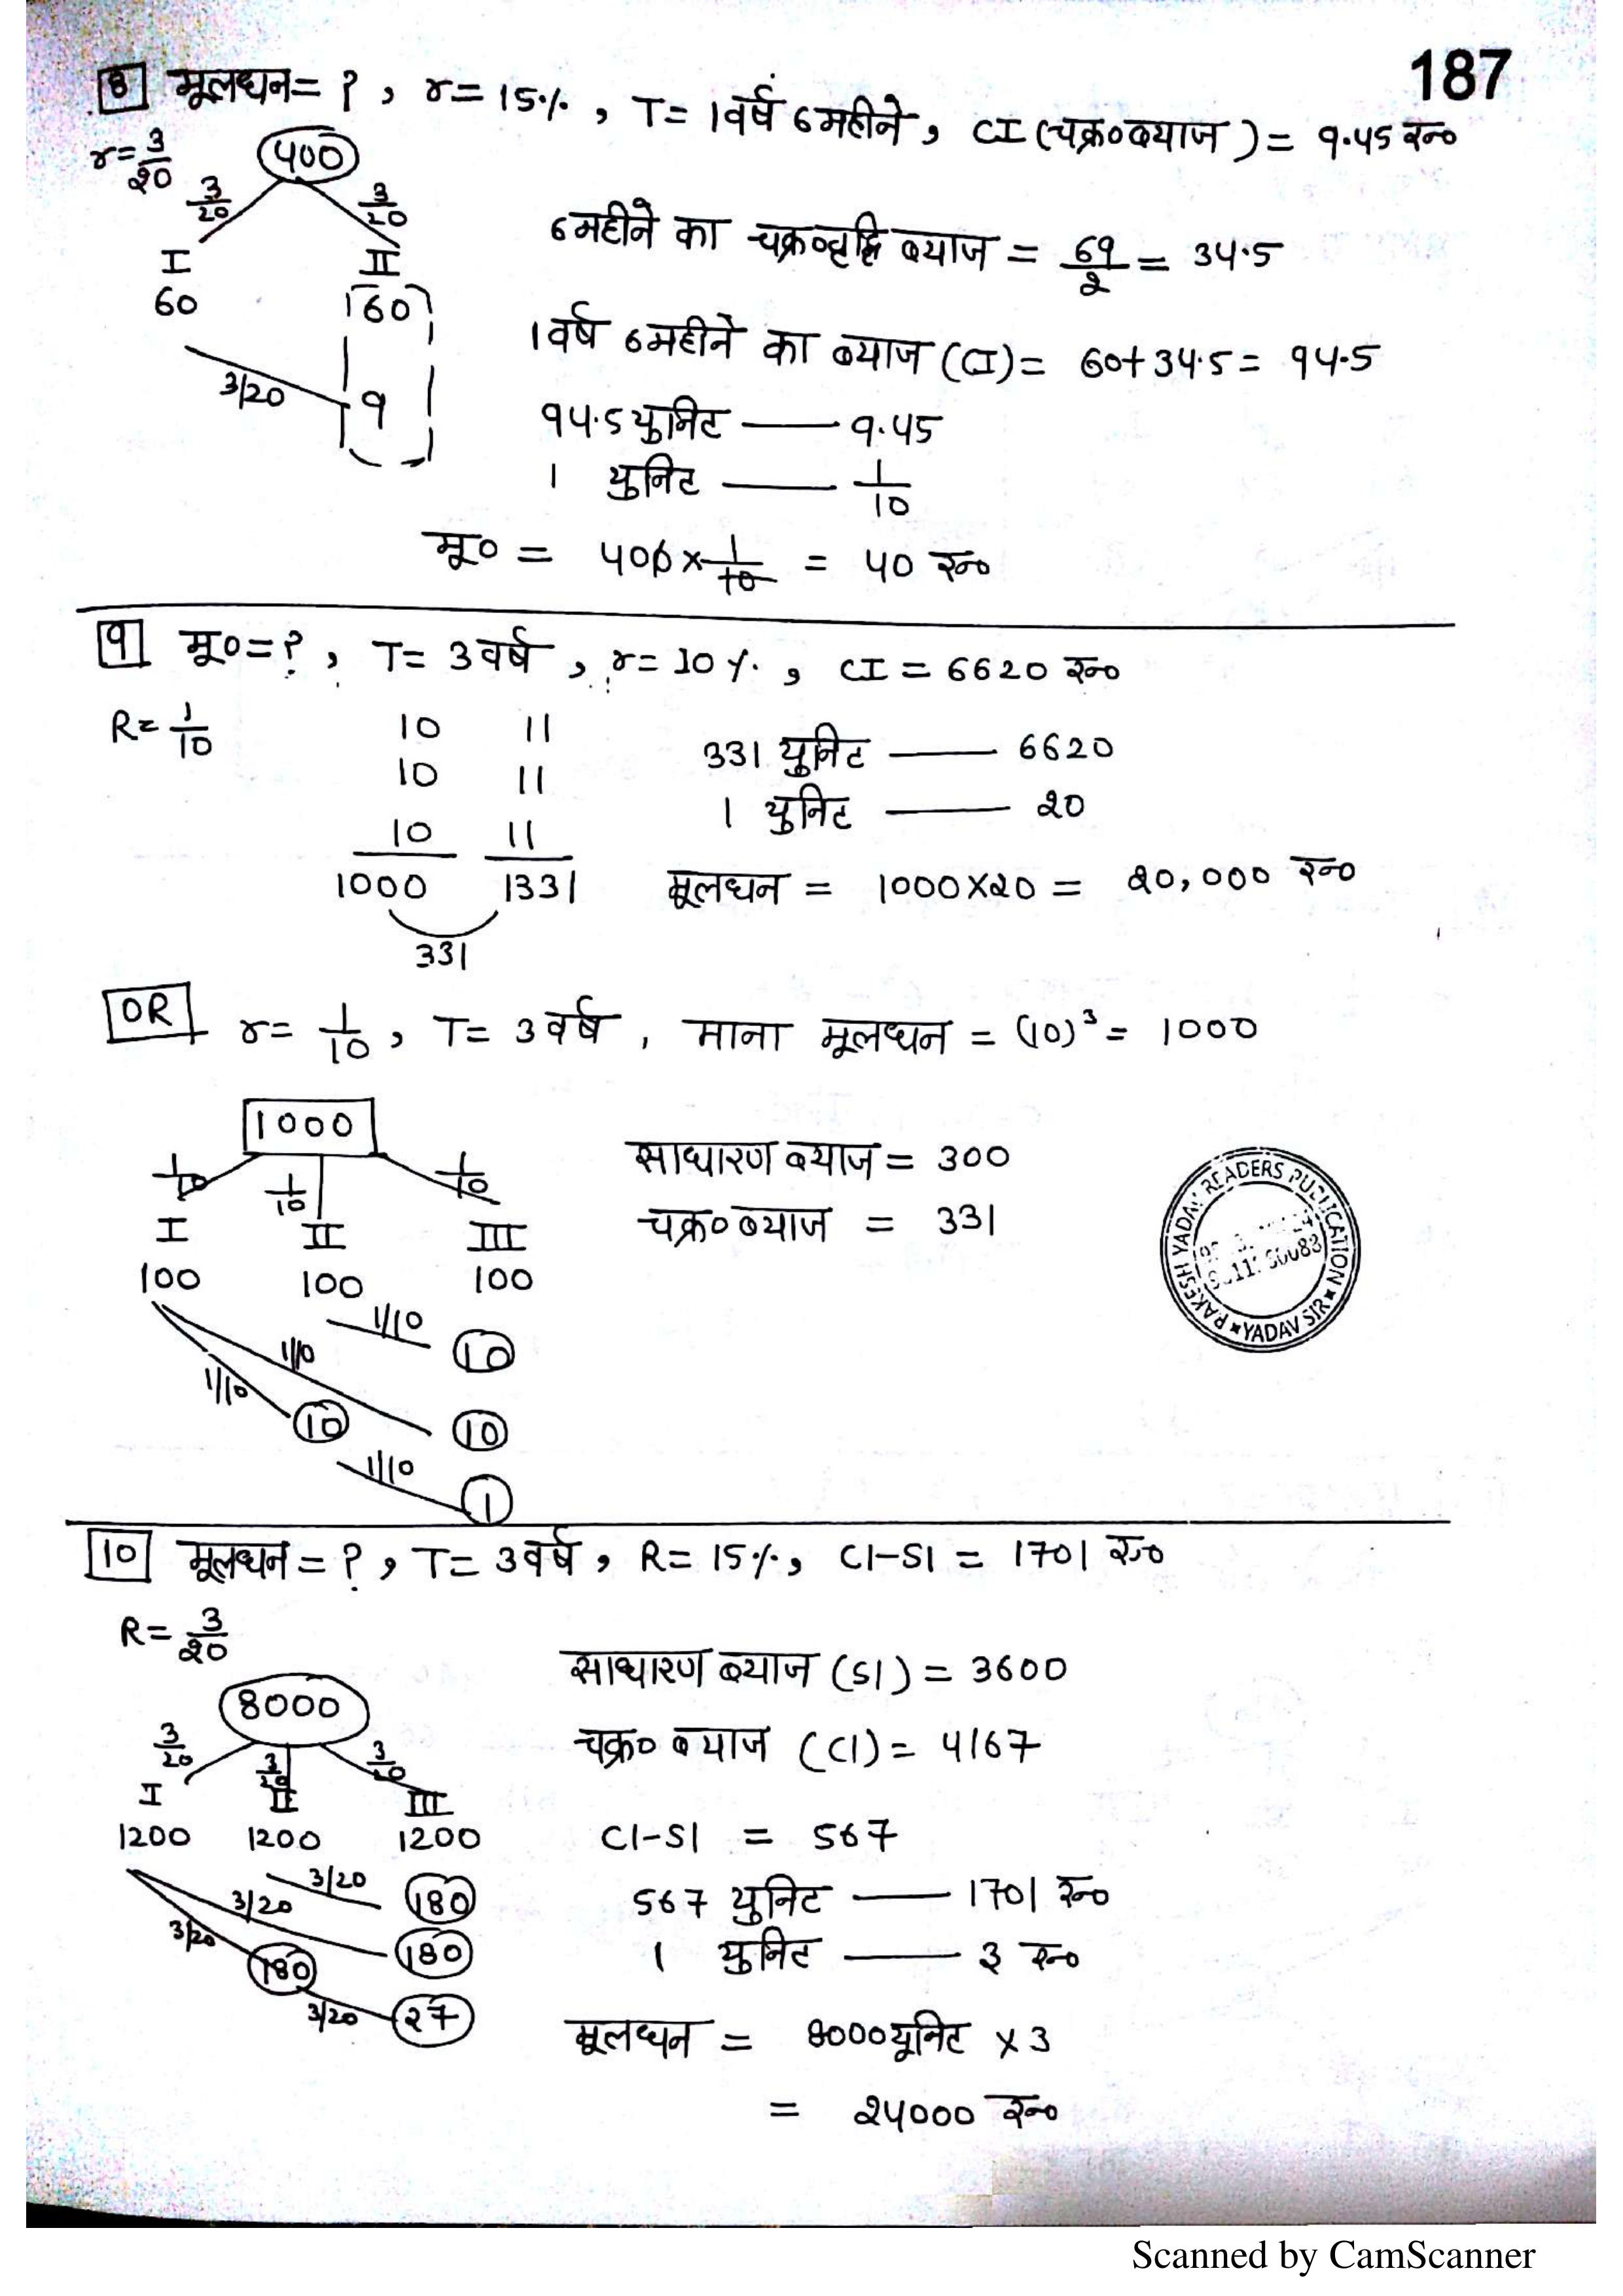 187
8 मूलधन = ? , r = 15% , T = 1वर्ष 6महीने , CI (चक्र० ब्याज ) = 9.45 रु०
r = 3/20
400
3/20 3/20
I II
60 60
3/20 9
6महीने का चक्रवृद्धि ब्याज = 69/2 = 34.5
1वर्ष 6महीने का ब्याज (CI) = 60+34.5 = 94.5
94.5 युनिट —— 9.45
1 युनिट —— 1/10
मू० = 400 × 1/10 = 40 रु०
9 मू० = ? , T = 3वर्ष , r = 10% , CI = 6620 रु०
R = 1/10
10 11
10 11
10 11
1000 1331
331
331 युनिट —— 6620
1 युनिट —— 20
मूलधन = 1000×20 = 20,000 रु०
OR r = 1/10 , T = 3वर्ष , माना मूलधन = (10)³ = 1000
1000
1/10 1/10 1/10
I II III
100 100 100
1/10 10
1/10 10
1/10 10
1/10 1
साधारण ब्याज = 300
चक्र० ब्याज = 331
RAKESH YADAV READERS PUBLICATION
YADAV SIR
10 मूलधन = ? , T = 3वर्ष , R = 15% , CI-SI = 1701 रु०
R = 3/20
8000
3/20 3/20 3/20
I II III
1200 1200 1200
3/20 180
3/20 180
3/20 180
3/20 27
साधारण ब्याज (SI) = 3600
चक्र० ब्याज (CI) = 4167
CI-SI = 567
567 युनिट —— 1701 रु०
1 युनिट —— 3 रु०
मूलधन = 8000यूनिट × 3
= 24000 रु०
Scanned by CamScanner